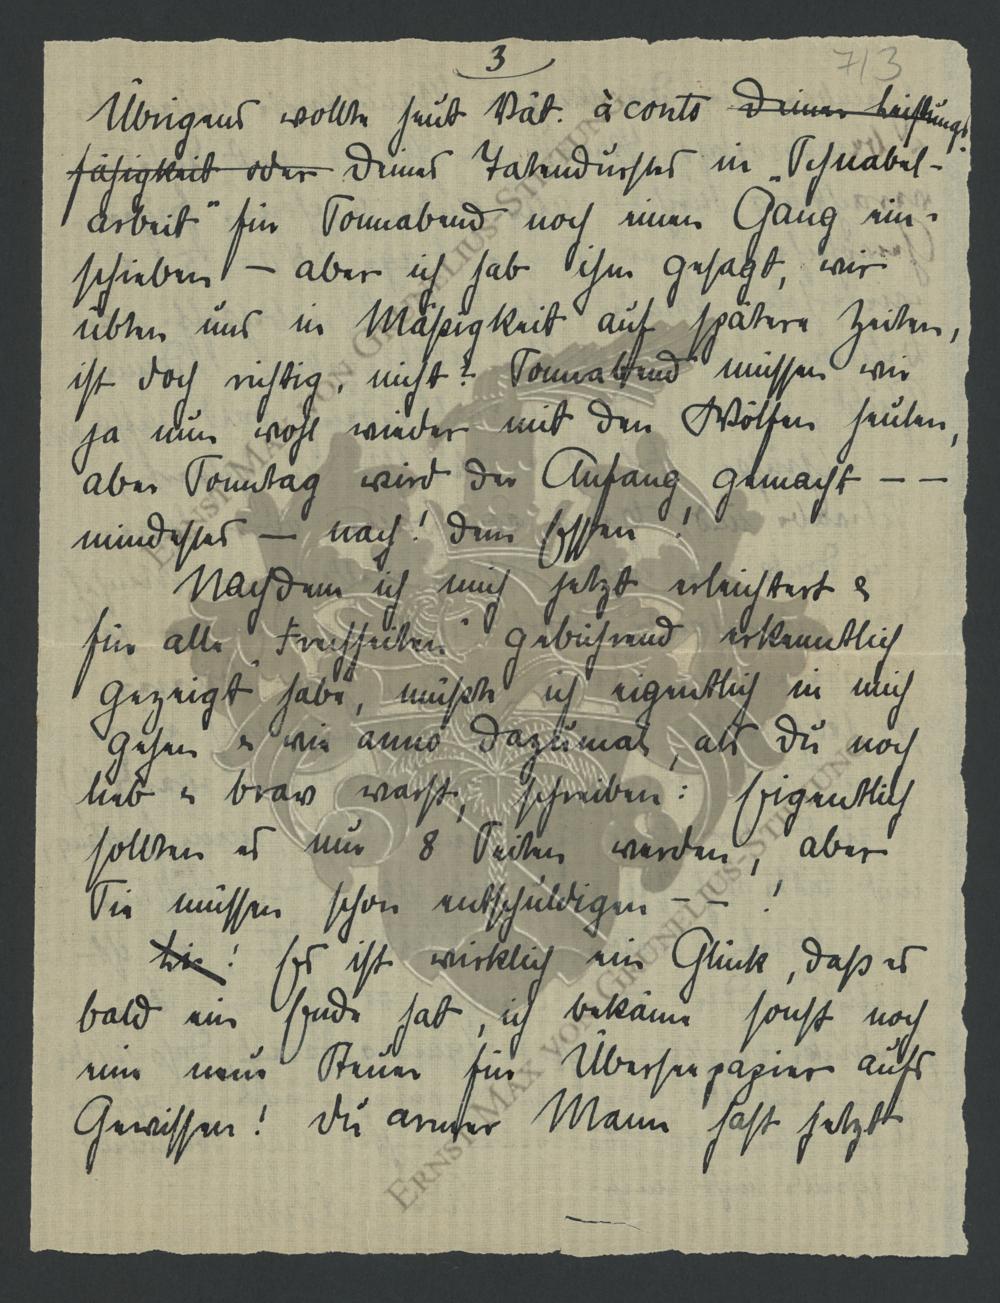 3
7/3
Übrigens wollte heut Vät. à conto ~~Deiner Leistungs-~~
~~fähigkeit oder~~ Deines Tatendurstes in „Schnabel-
arbeit" für Sonnabend noch einen Gang ein-
schieben – aber ich hab ihm gesagt, wir
übten uns in Mäßigkeit auf spätere Zeiten,
ist doch richtig, nicht? Sonnabend müssen wir
ja nun wohl wieder mit den Wölfen heulen,
aber Sonntag wird der Anfang gemacht – –
mindestes – nach! dem Essen!
Nachdem ich mich jetzt erleichtert &
für alle „Frechheiten" gebührend erkenntlich
gezeigt habe, müßte ich eigentlich in mich
gehen & wie anno dazumal, als Du noch
lieb & brav warst, schreiben: Eigentlich
sollten es nur 8 Seiten werden, aber
Sie müssen schon entschuldigen – – !
! Es ist wirklich ein Glück, daß es
bald ein Ende hat, ich bekäme sonst noch
eine neue Steuer für Überseepapier aufs
Gewissen! Du armer Mann hast jetzt
ERNST MAX VON GRUNELIUS-STIFTUNG
ERNST MAX VON GRUNELIUS-STIFTUNG